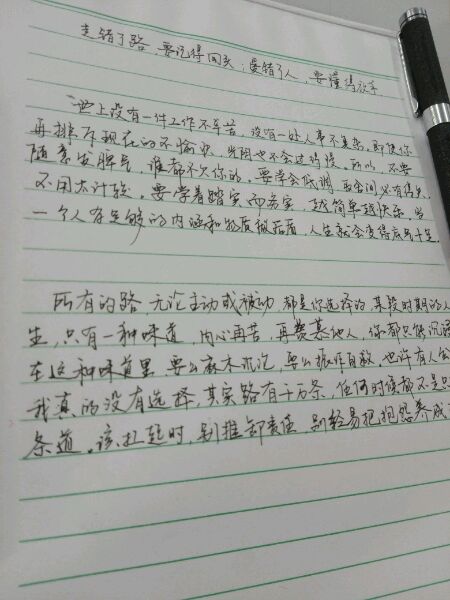 走错了路，要记得回头；爱错了人，要懂得放手
世上没有一件工作不辛苦，没有一处人事不复杂，即使你
再排斥现在的不愉快，光阴也不会过得慢。所以，不要
随意发脾气，谁都不欠你的。要学会低调，取舍间必有得失，
不用太计较。要学着踏实而务实，越简单越快乐。当
一个人有足够的内涵和物质做后盾，人生就会变得底气十足。
所有的路，无论主动或被动，都是你选择的。某段时期的人
生，只有一种味道，内心再苦，再羡慕他人，你都只能沉浸
在这种味道里，要么麻木沉沦，要么振作自救。也许有人会
我真的没有选择，其实路有千万条，任何时候都不是只
条道。该扛起时，别推卸责任，别轻易把抱怨养成